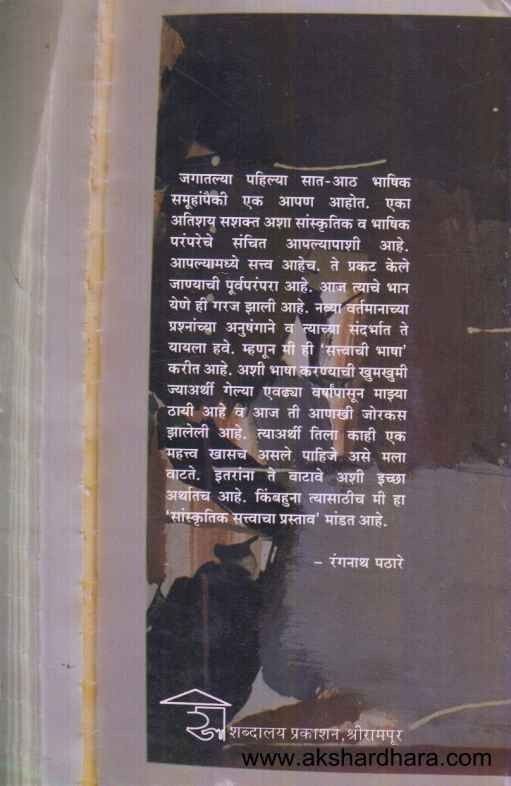 जगातल्या पहिल्या सात-आठ भाषिक
समूहांपैकी एक आपण आहोत. एका
अतिशय सशक्त अशा सांस्कृतिक व भाषिक
परंपरेचे संचित आपल्यापाशी आहे.
आपल्यामध्ये सत्त्व आहेच. ते प्रकट केले
जाण्याची पूर्वपरंपरा आहे. आज त्याचे भान
येणे ही गरज झाली आहे. नव्या वर्तमानाच्या
प्रश्नांच्या अनुषंगाने व त्याच्या संदर्भात ते
यायला हवे. म्हणून मी ही 'सत्त्वाची भाषा'
करीत आहे. अशी भाषा करण्याची खुमखुमी
ज्याअर्थी गेल्या एवढ्या वर्षांपासून माझ्या
ठायी आहे व आज ती आणखी जोरकस
झालेली आहे. त्याअर्थी तिला काही एक
महत्त्व खासच असले पाहिजे असे मला
वाटते. इतरांना ते वाटावे अशी इच्छा
अर्थातच आहे. किंबहुना त्यासाठीच मी हा
'सांस्कृतिक सत्त्वाचा प्रस्ताव' मांडत आहे.
– रंगनाथ पठारे
शब्दालय प्रकाशन, श्रीरामपूर
www.akshardhara.com